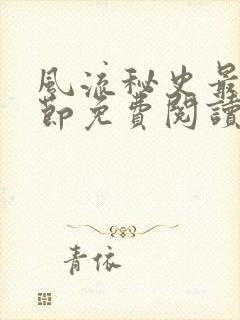 風流秘史最
節免費閱讀
青依